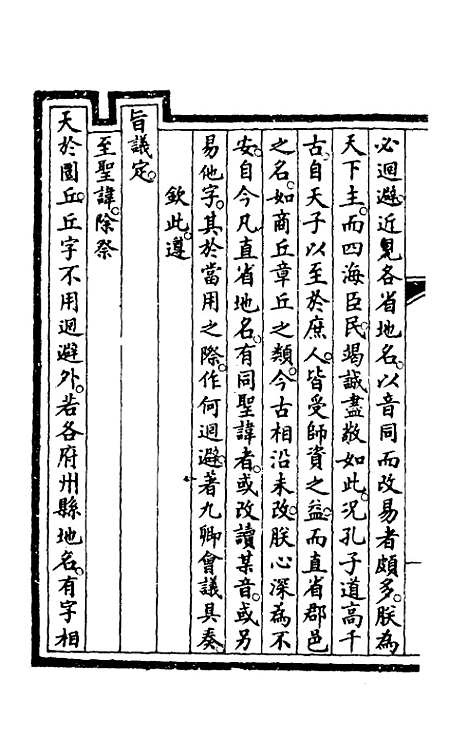 必迴避。近見各省地名。以音同而改易者頗多。朕為
天下主。而四海臣民。竭誠盡敬如此。況孔子道高千
古。自天子以至於庶人。皆受師資之益。而直省郡邑
之名。如商丘章丘之類。今古相沿未改。朕心深為不
安。自今凡直省地名。有同聖諱者。或改讀某音。或另
易他字。其於當用之際。作何迴避。著九卿會議具奏。
欽此遵
旨議定。
至聖諱。除祭
天於圜丘。丘字不用迴避外。若各府州縣地名。有字相